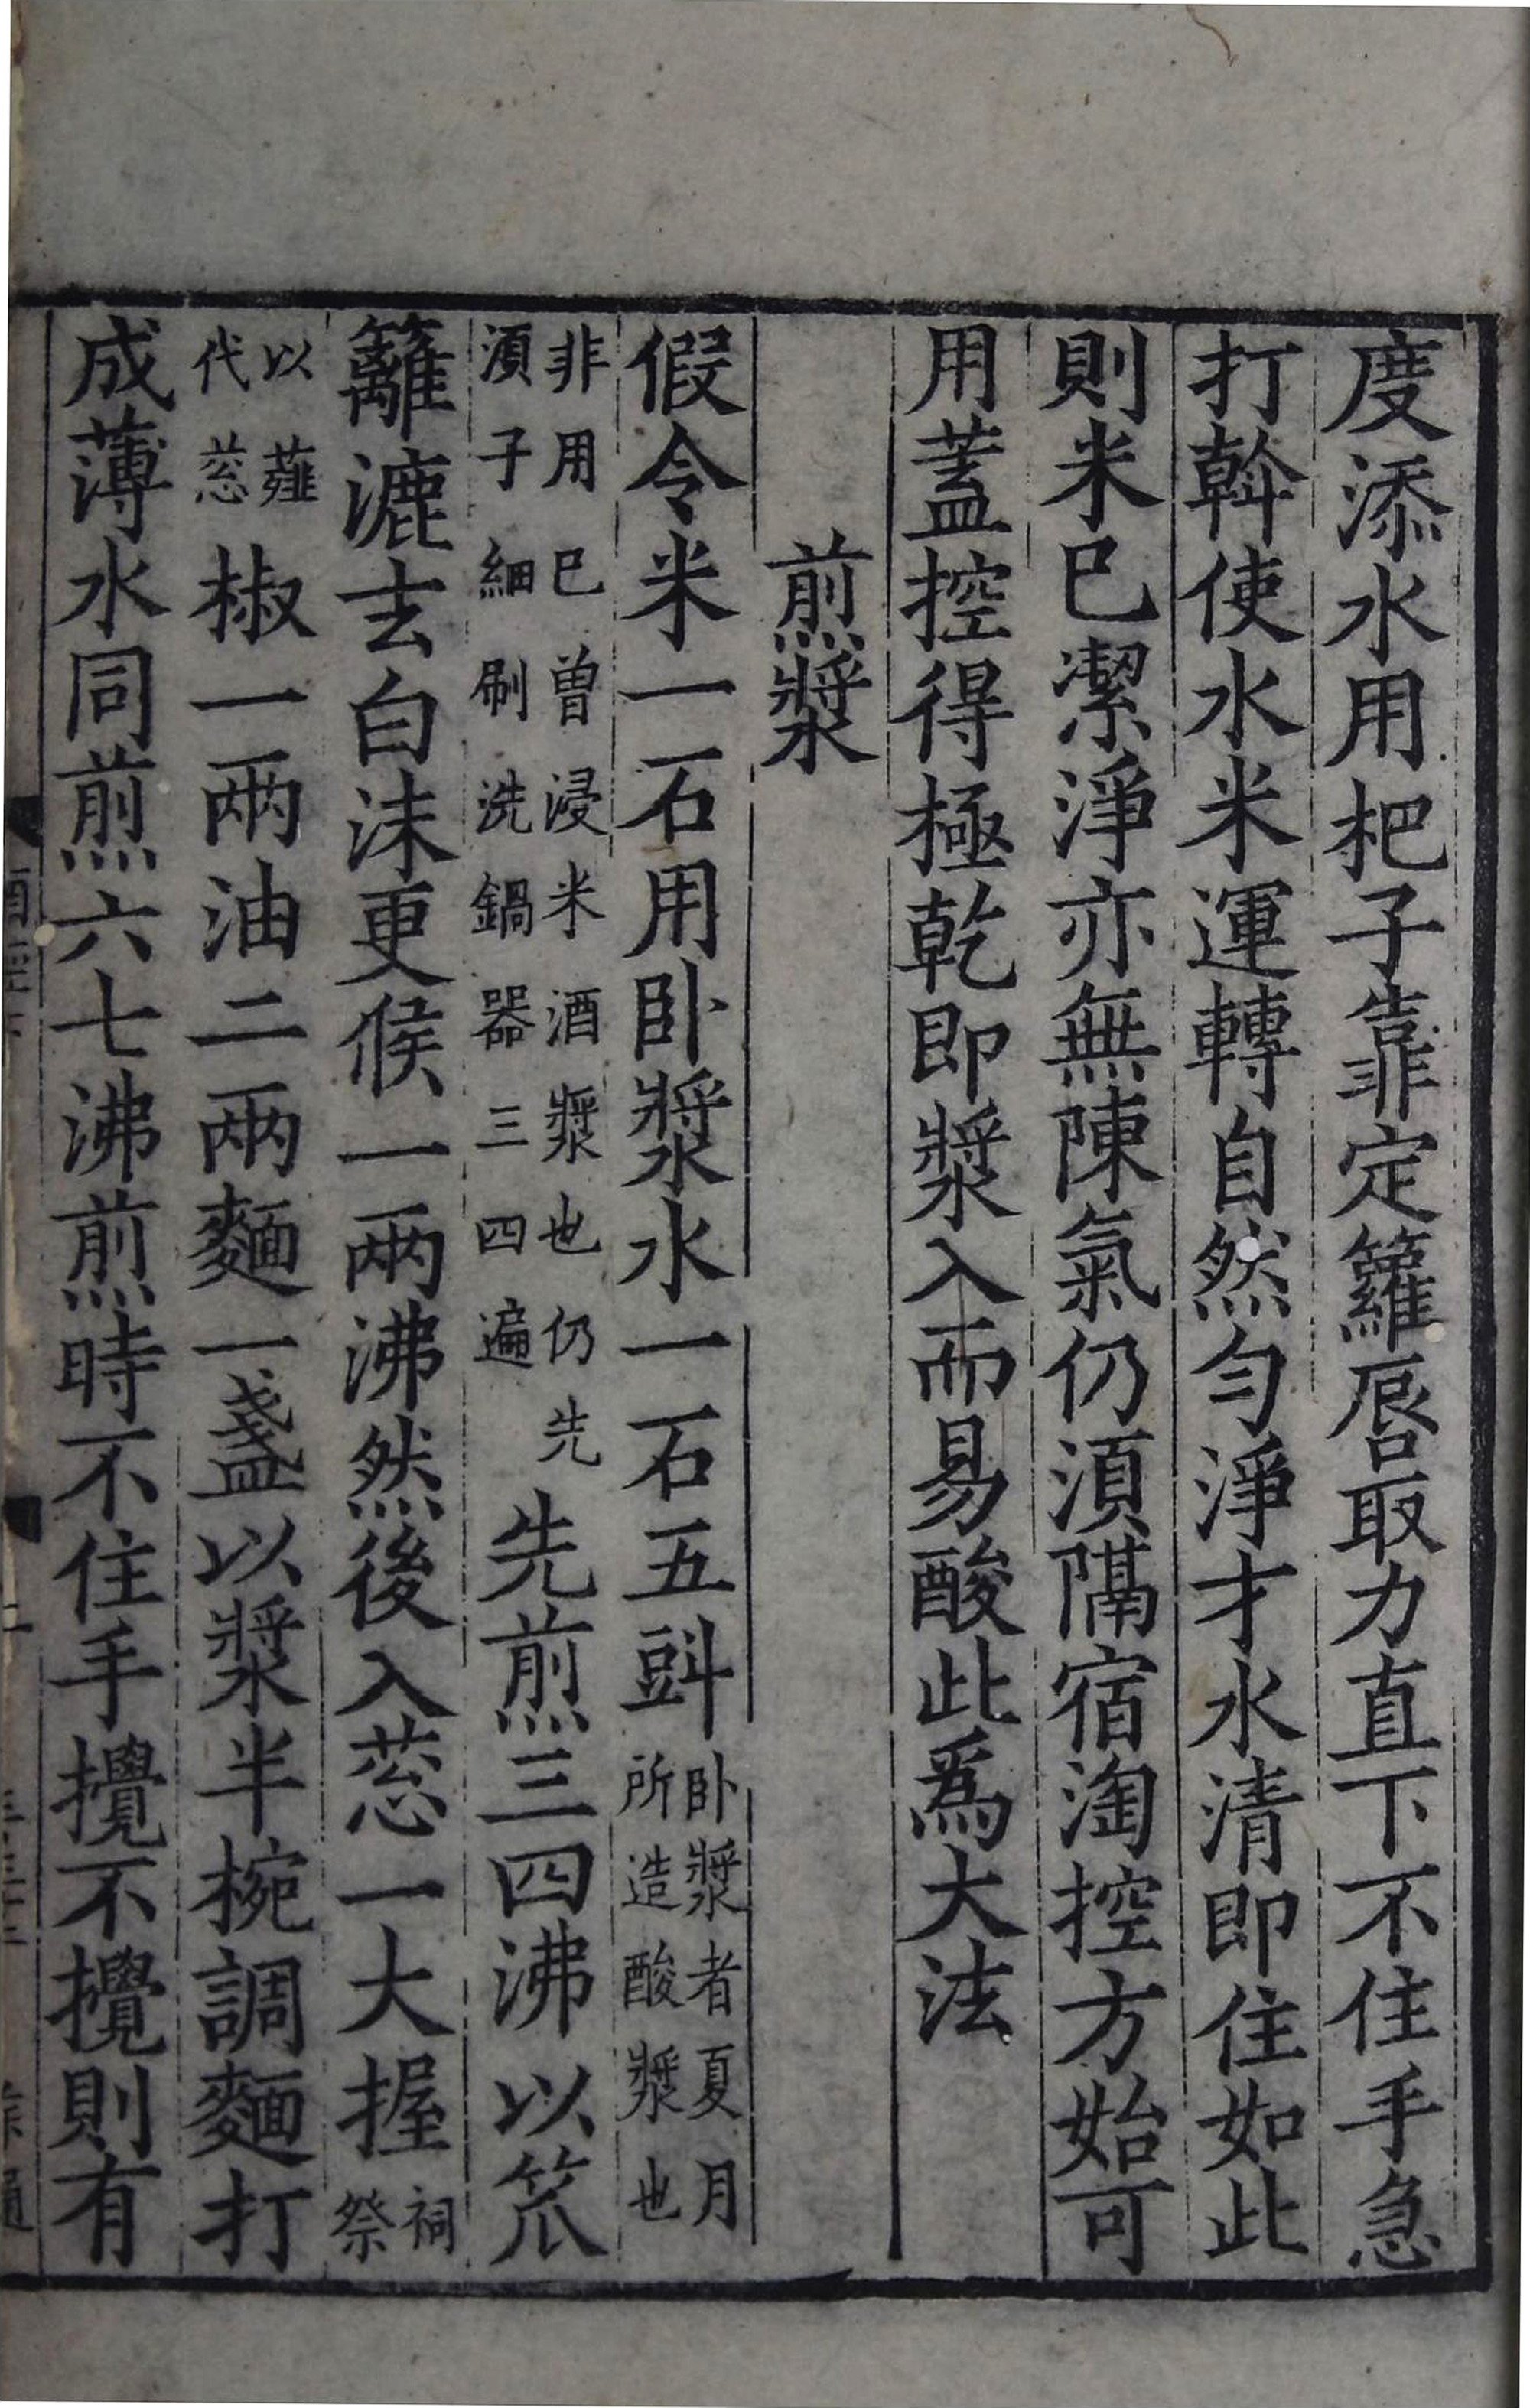 度添水用杷子靠定籮唇取力直下不住手急
打斡使水米運轉自然勻淨才水清即住如此
則米已潔淨亦無陳氣仍湏隔宿淘控方始可
用蓋控得極乾即漿入而易酸此為大法
煎漿
假令米一石用卧漿水一石五㪷卧漿者夏月所造酸漿也
非用已曾浸米酒漿也仍先湏子細刷洗鍋器三四遍先煎三四沸以笊
籬漉去白沫更候一兩沸然後入葱一大握祠祭
以薤代葱椒一兩油二兩麵一盞以漿半椀調麵打
成薄水同煎六七沸煎時不住手攪不攪則有